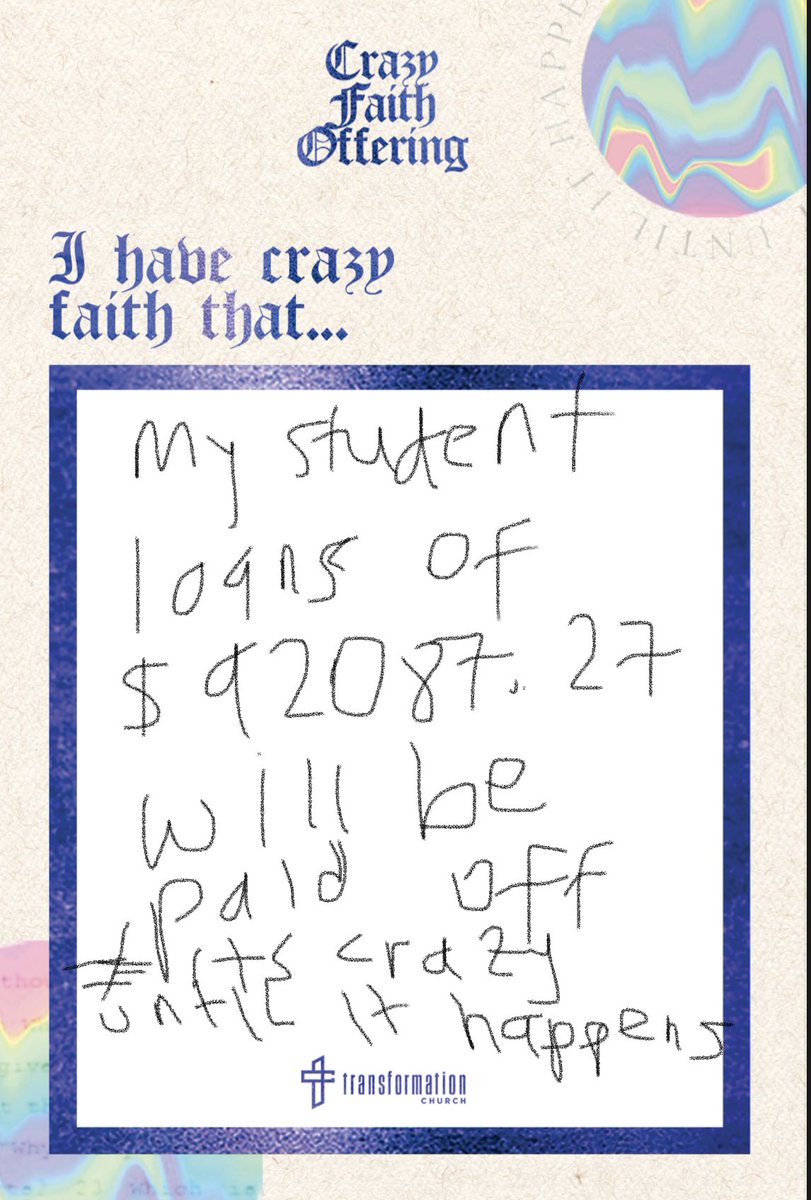 Crazy
Faith
Offering
UNTIL IT HAPPE
I have crazy
faith that...
My student
loans of
$92087.27
will be
paid off
#its crazy
until it happens
transformation
CHURCH